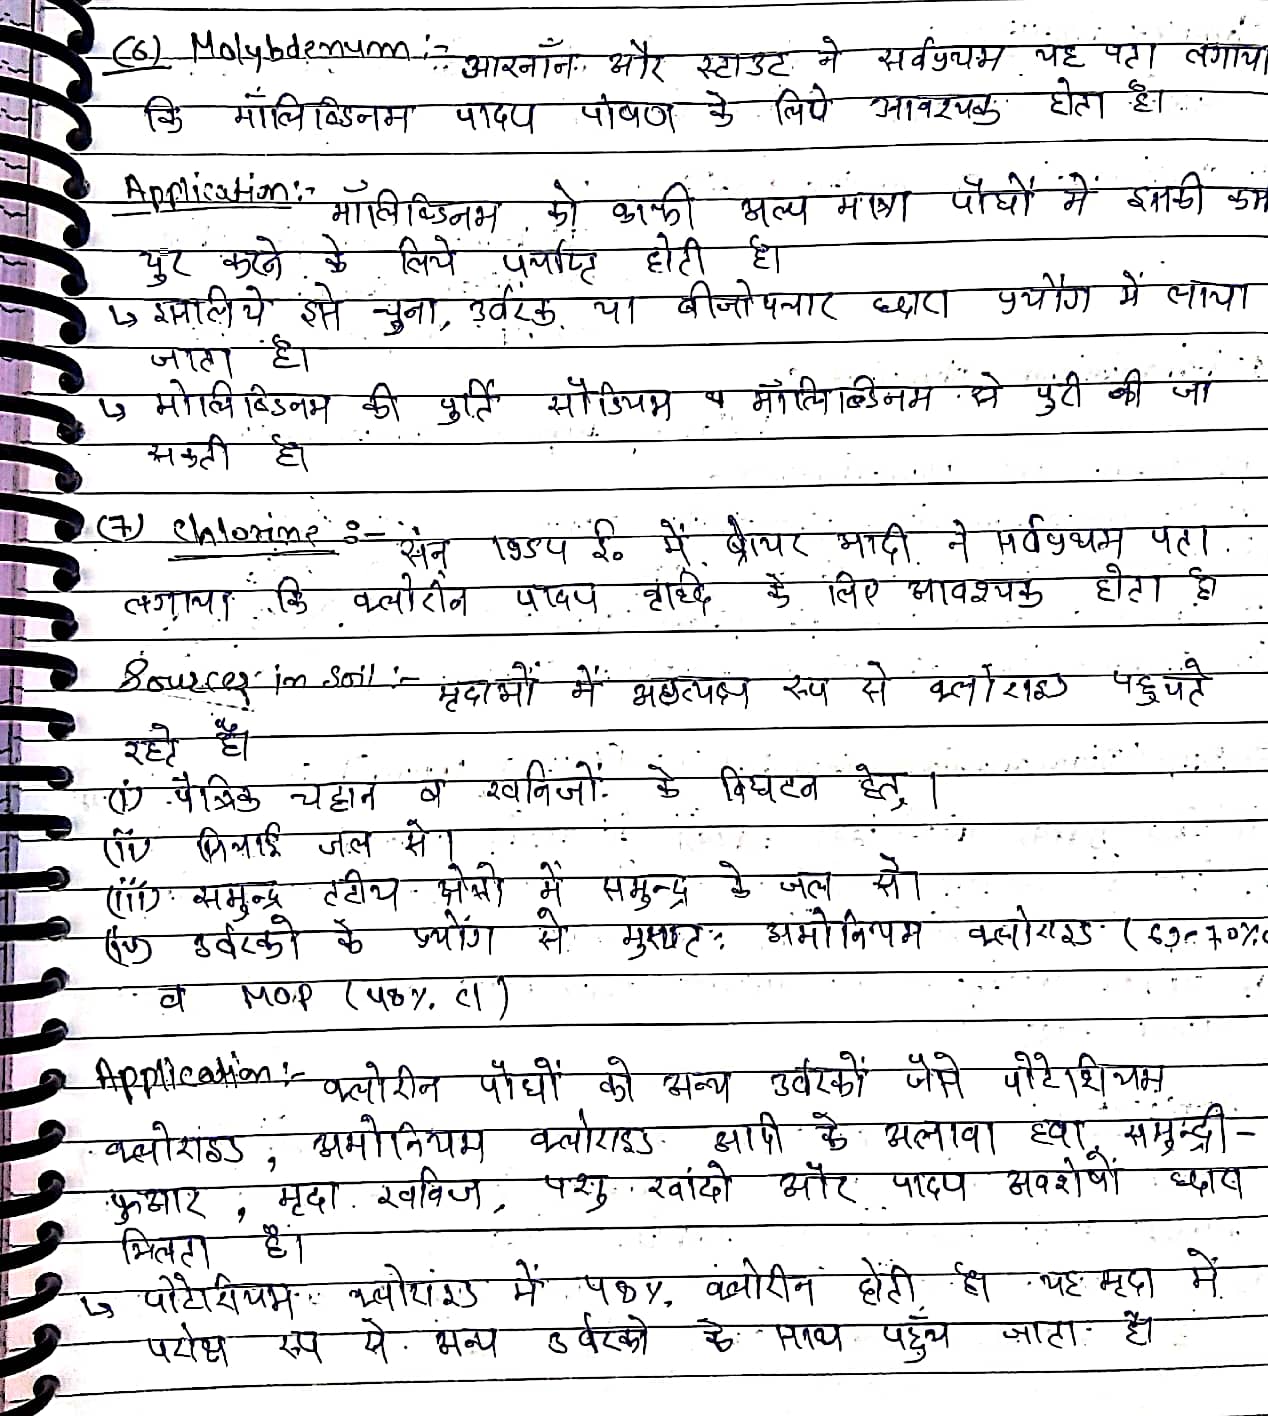 (6) Molybdenum :- आरनॉन और स्टाउट ने सर्वप्रथम यह पता लगाया
कि मॉलिब्डिनम पादप पोषण के लिये आवश्यक होता है।
Application :- मॉलिब्डिनम को काफी अल्प मात्रा पौघों में इसकी कम
पुर करने के लिये पर्याप्ट होती है।
↳ इसलिये इसे चुना, उर्वरक या बीजोपचार ध्दारा प्रयोंग में लाया
जाता है।
↳ मोलिब्डिनम की पुर्ति सोडियम व मॉलिब्डिनम से पुरी की जा
सकती है।
(7) Chlorine :- सन् 1954 ई० में ब्रोयर आदी ने सर्वप्रथम पता
लगाया कि क्लोरीन पादप वृध्दि के लिए आवश्यक होता है।
Sources in Soil :- मृदाओं में अप्रत्यक्ष रूप से क्लोराइड पहुचते
रहते है।
(i) पैत्रिक चट्टान व खनिजों के विघटन हेतु।
(ii) सिचाई जल से।
(iii) समुन्द्र तटीय क्षेत्रो में समुन्द्र के जल से।
(iv) उर्वरको के प्रयोंग से मुख्यतः अमोनियम क्लोराइड (69-70%
व M.O.P (48% Cl)
Application :- क्लोरीन पौघों को अन्य उर्वरकों जैसे पोटेशियम
क्लोराइड, अमोनियम क्लोराइड आदी के अलावा हवा, समुन्द्री-
फुआर, मृदा खनिज, पशु खादो और पादप अवशेषों ध्दारा
मिलता है।
↳ पोटेशियम क्लोराइड में 48% क्लोरीन होती है। यह मृदा में
परोक्ष रूप से अन्य उर्वरको के साथ पहुँच जाता है।